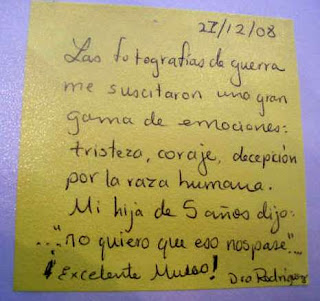 27/12/08
Las fotografías de guerra
me suscitaron una gran
gama de emociones:
tristeza, coraje, decepción
por la raza humana.
Mi hija de 5 años dijo:
..."no quiero que eso nos pase"...
¡Excelente Museo! Dra Rodríguez